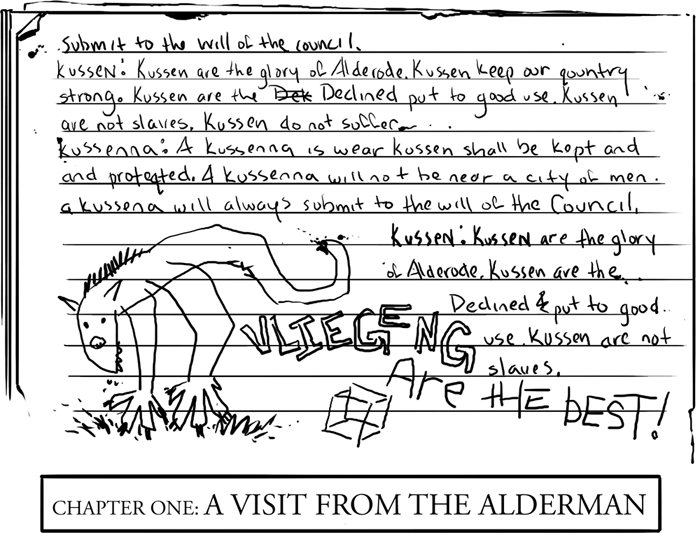 Submit to the will of the council.
Kussen: Kussen are the glory of Alderode. Kussen keep our qountry
strong. Kussen are the Dek Declined put to good use. Kussen
are not slaves. Kussen do not suffer
Kussenna: A Kussenna is wear Kussen shall be kept and
and proteqted. A kussenna will not be near a city of men.
a kussena will always submit to the will of the Council.
Kussen: Kussen are the glory
of Alderode. Kussen are the..
Declined & put to good
use. Kussen are not
slaves.
VLIEGENG
Are tHE bEST!
CHAPTER ONE: A VISIT FROM THE ALDERMAN